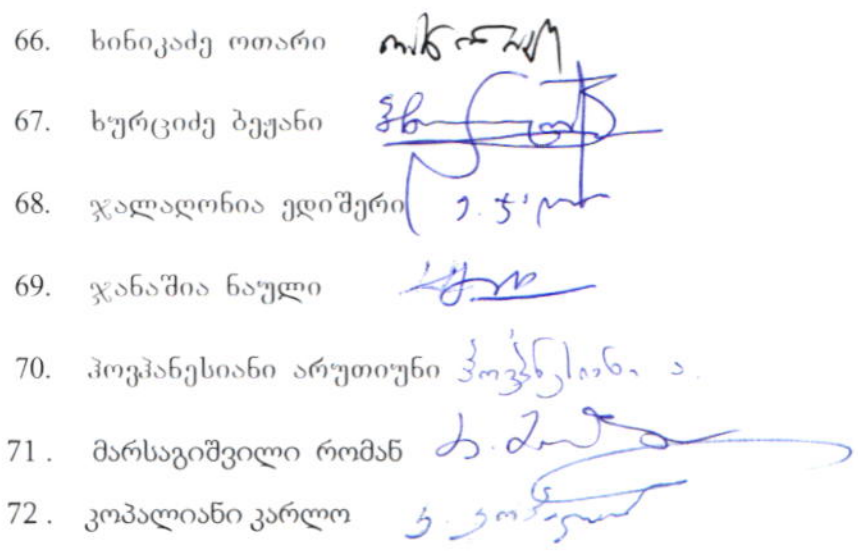 66. ხინიკაძე ოთარი
67. ხურციძე ბეჟანი
68. ჯალაღონია ედიშერი ე. ჯ
69. ჯანაშია ნაული
70. ჰოვჰანესიანი არუთიუნი ჰოვჰნესიანი ა.
71. მარსაგიშვილი რომან
72. კოპალიანი კარლო კ. კოპალიანი